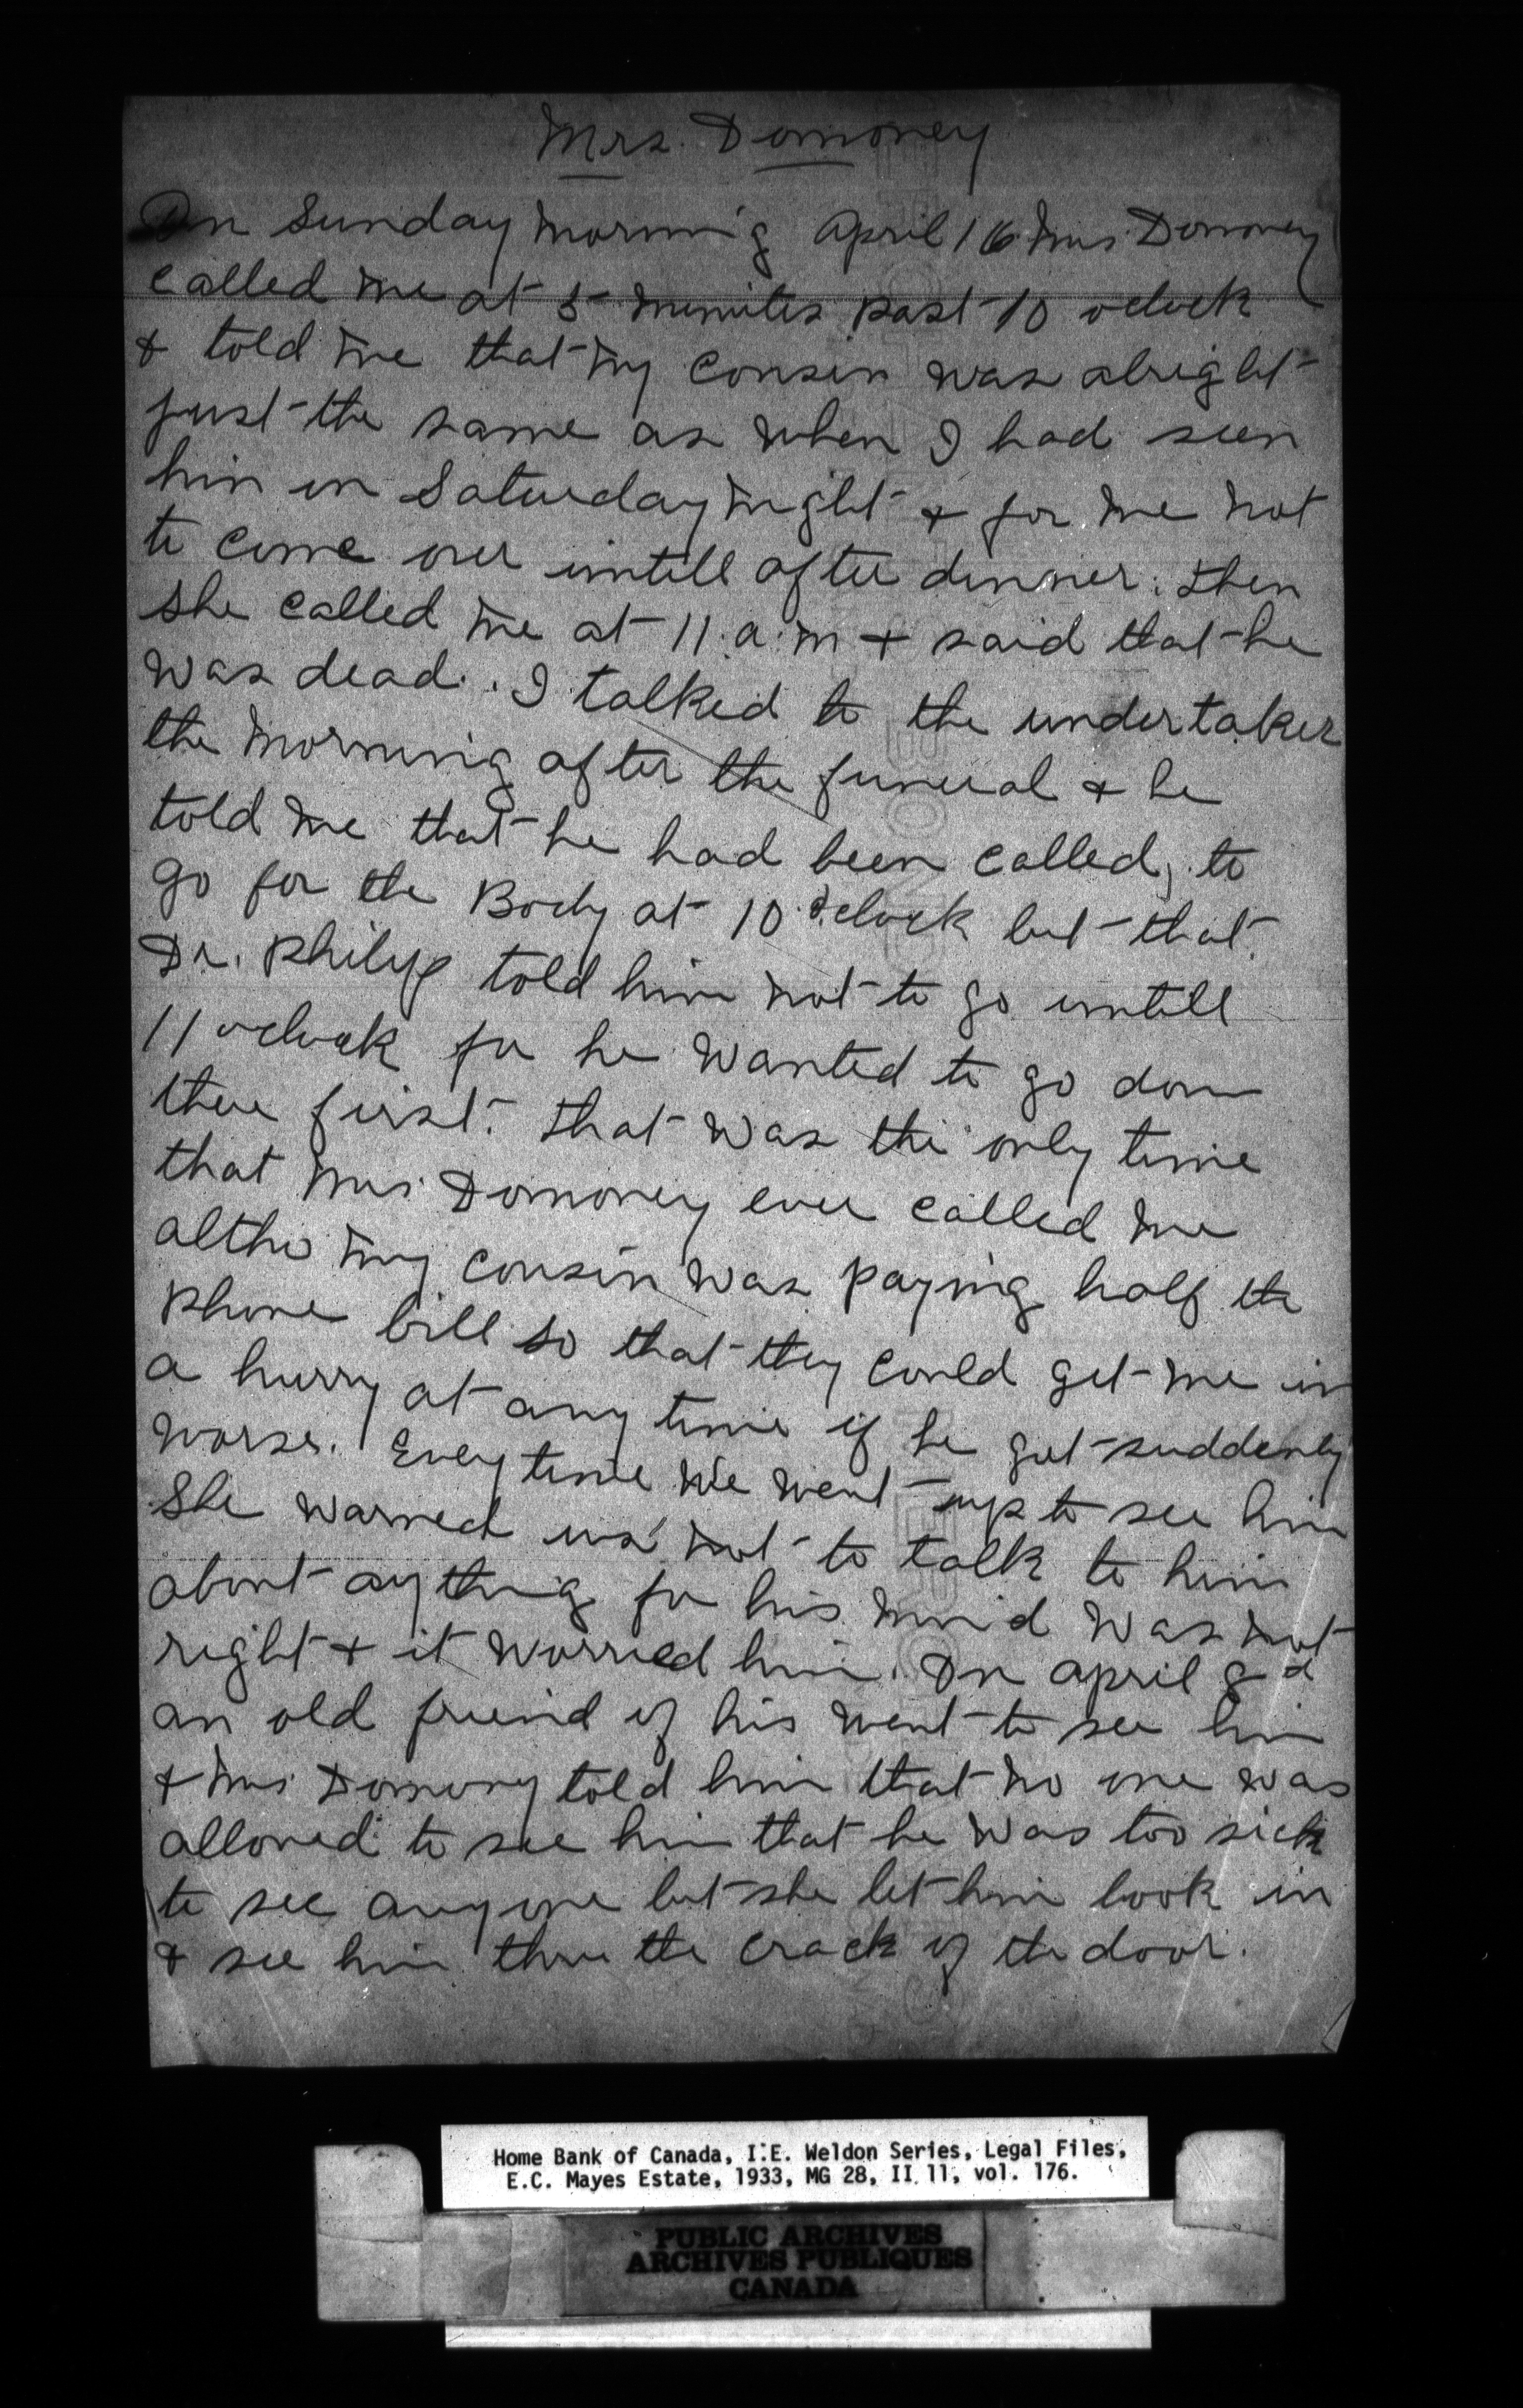 Mrs. Domoney
On Sunday morning April 16 Mrs. Domoney
called me at 5 minutes past 10 oclock
& told me that my cousin was alright
just the same as when I had seen
him on Saturday night & for me not
to come over untill after dinner. then
she called me at 11. a.m & said that he
was dead. I talked to the undertaker
the morning after the funeral & he
told me that he had been called, to
go for the Body at 10 o'clock but that
Dr. Philip told him not to go untill
11 oclock for he wanted to go down
there first. that was the only time
that Mrs. Domoney ever called me
altho my cousin was paying half the
phone bill so that they could get me in
a hurry at any time if he got suddenly
worse. Every time we went up to see him
she warned us not to talk to him
about anything for his mind was not
right & it worried him. On April
an old friend of his went to see him
& Mrs. Domoney told him that no one was
allowed to see him that he was too sick
to see anyone but she let him look in
& see him thru the crack of the door.
Home Bank of Canada, I.E. Weldon Series, Legal Files,
E.C. Mayes Estate, 1933, MG 28, II 11, vol. 176.
PUBLIC ARCHIVES
ARCHIVES PUBLIQUES
CANADA